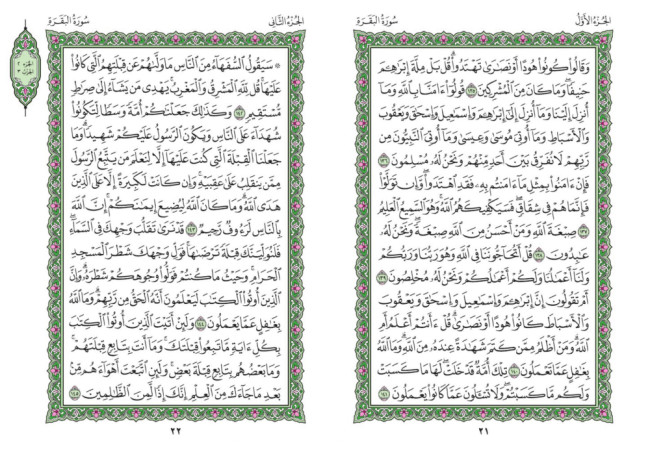 الجزء الأول
سورة البقرة
وَقَالُوا۟ كُونُوا۟ هُودًا أَوْ نَصَـٰرَىٰ تَهْتَدُوا۟ ۗ قُلْ بَلْ مِلَّةَ إِبْرَٰهِـۧمَ
حَنِيفًا ۖ وَمَا كَانَ مِنَ ٱلْمُشْرِكِينَ ١٣٥ قُولُوٓا۟ ءَامَنَّا بِٱللَّهِ وَمَآ
أُنزِلَ إِلَيْنَا وَمَآ أُنزِلَ إِلَىٰٓ إِبْرَٰهِـۧمَ وَإِسْمَـٰعِيلَ وَإِسْحَـٰقَ وَيَعْقُوبَ
وَٱلْأَسْبَاطِ وَمَآ أُوتِىَ مُوسَىٰ وَعِيسَىٰ وَمَآ أُوتِىَ ٱلنَّبِيُّونَ مِن
رَّبِّهِمْ لَا نُفَرِّقُ بَيْنَ أَحَدٍ مِّنْهُمْ وَنَحْنُ لَهُۥ مُسْلِمُونَ ١٣٦
فَإِنْ ءَامَنُوا۟ بِمِثْلِ مَآ ءَامَنتُم بِهِۦ فَقَدِ ٱهْتَدَوا۟ ۖ وَّإِن تَوَلَّوْا۟
فَإِنَّمَا هُمْ فِى شِقَاقٍ ۖ فَسَيَكْفِيكَهُمُ ٱللَّهُ ۚ وَهُوَ ٱلسَّمِيعُ ٱلْعَلِيمُ
١٣٧ صِبْغَةَ ٱللَّهِ ۖ وَمَنْ أَحْسَنُ مِنَ ٱللَّهِ صِبْغَةً ۖ وَنَحْنُ لَهُۥ
عَـٰبِدُونَ ١٣٨ قُلْ أَتُحَآجُّونَنَا فِى ٱللَّهِ وَهُوَ رَبُّنَا وَرَبُّكُمْ
وَلَنَآ أَعْمَـٰلُنَا وَلَكُمْ أَعْمَـٰلُكُمْ وَنَحْنُ لَهُۥ مُخْلِصُونَ ١٣٩
أَمْ تَقُولُونَ إِنَّ إِبْرَٰهِـۧمَ وَإِسْمَـٰعِيلَ وَإِسْحَـٰقَ وَيَعْقُوبَ
وَٱلْأَسْبَاطَ كَانُوا۟ هُودًا أَوْ نَصَـٰرَىٰ ۗ قُلْ ءَأَنتُمْ أَعْلَمُ أَمِ
ٱللَّهُ ۗ وَمَنْ أَظْلَمُ مِمَّن كَتَمَ شَهَـٰدَةً عِندَهُۥ مِنَ ٱللَّهِ ۗ وَمَا ٱللَّهُ
بِغَـٰفِلٍ عَمَّا تَعْمَلُونَ ١٤٠ تِلْكَ أُمَّةٌ قَدْ خَلَتْ ۖ لَهَا مَا كَسَبَتْ
وَلَكُم مَّا كَسَبْتُمْ ۖ وَلَا تُسْـَٔلُونَ عَمَّا كَانُوا۟ يَعْمَلُونَ ١٤١
٢١
الجزء الثاني
سورة البقرة
۞ سَيَقُولُ ٱلسُّفَهَآءُ مِنَ ٱلنَّاسِ مَا وَلَّىٰهُمْ عَن قِبْلَتِهِمُ ٱلَّتِى كَانُوا۟
عَلَيْهَا ۚ قُل لِّلَّهِ ٱلْمَشْرِقُ وَٱلْمَغْرِبُ ۚ يَهْدِى مَن يَشَآءُ إِلَىٰ صِرَٰطٍ
مُّسْتَقِيمٍ ١٤٢ وَكَذَٰلِكَ جَعَلْنَـٰكُمْ أُمَّةً وَسَطًا لِّتَكُونُوا۟
شُهَدَآءَ عَلَى ٱلنَّاسِ وَيَكُونَ ٱلرَّسُولُ عَلَيْكُمْ شَهِيدًا ۗ وَمَا
جَعَلْنَا ٱلْقِبْلَةَ ٱلَّتِى كُنتَ عَلَيْهَآ إِلَّا لِنَعْلَمَ مَن يَتَّبِعُ ٱلرَّسُولَ
مِمَّن يَنقَلِبُ عَلَىٰ عَقِبَيْهِ ۚ وَإِن كَانَتْ لَكَبِيرَةً إِلَّا عَلَى ٱلَّذِينَ
هَدَى ٱللَّهُ ۗ وَمَا كَانَ ٱللَّهُ لِيُضِيعَ إِيمَـٰنَكُمْ ۚ إِنَّ ٱللَّهَ
بِٱلنَّاسِ لَرَءُوفٌ رَّحِيمٌ ١٤٣ قَدْ نَرَىٰ تَقَلُّبَ وَجْهِكَ فِى ٱلسَّمَآءِ ۖ
فَلَنُوَلِّيَنَّكَ قِبْلَةً تَرْضَىٰهَا ۚ فَوَلِّ وَجْهَكَ شَطْرَ ٱلْمَسْجِدِ
ٱلْحَرَامِ ۚ وَحَيْثُ مَا كُنتُمْ فَوَلُّوا۟ وُجُوهَكُمْ شَطْرَهُۥ ۗ وَإِنَّ
ٱلَّذِينَ أُوتُوا۟ ٱلْكِتَـٰبَ لَيَعْلَمُونَ أَنَّهُ ٱلْحَقُّ مِن رَّبِّهِمْ ۗ وَمَا ٱللَّهُ
بِغَـٰفِلٍ عَمَّا يَعْمَلُونَ ١٤٤ وَلَئِنْ أَتَيْتَ ٱلَّذِينَ أُوتُوا۟ ٱلْكِتَـٰبَ
بِكُلِّ ءَايَةٍ مَّا تَبِعُوا۟ قِبْلَتَكَ ۚ وَمَآ أَنتَ بِتَابِعٍ قِبْلَتَهُمْ ۚ
وَمَا بَعْضُهُم بِتَابِعٍ قِبْلَةَ بَعْضٍ ۚ وَلَئِنِ ٱتَّبَعْتَ أَهْوَآءَهُم مِّنۢ
بَعْدِ مَا جَآءَكَ مِنَ ٱلْعِلْمِ ۙ إِنَّكَ إِذًا لَّمِنَ ٱلظَّـٰلِمِينَ ١٤٥
٢٢